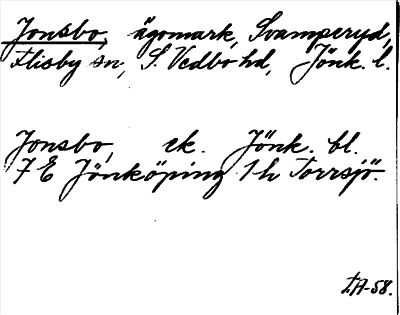 Jonsbo, ägomark, Svamperyd,
Flisby sn, S. Vedbo hd, Jönk. l.
Jonsbo, ek. Jönk. bl.
7 E Jönköping 1 h Torrsjö.
I.A-58.